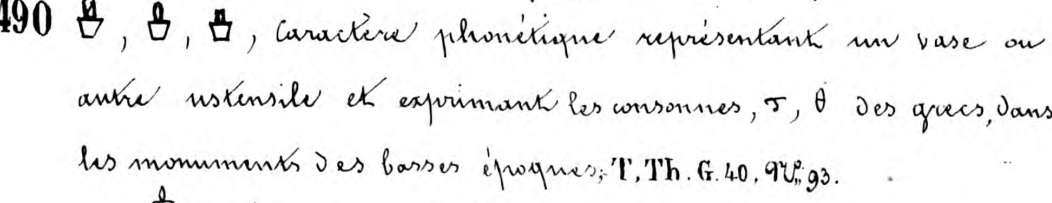 490 , , , Caractère phonétique représentant un vase ou
autre ustensile et exprimant les consonnes, τ, θ des grecs, dans
les monuments des basses époques; T, Th. G. 40. 93.